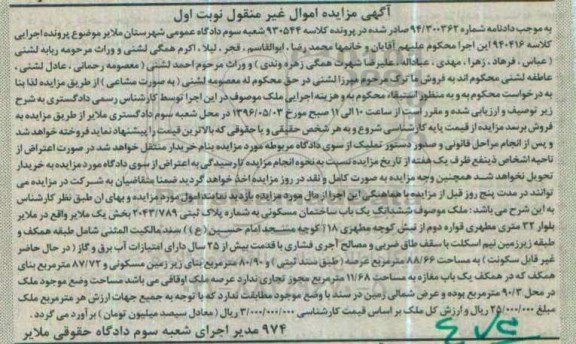 آگهی مزایده اموال غیر منقول نوبت اول
به موجب دادنامه شماره ۹۴/۳۰۰۳۶۲ صادر شده در پرونده کلاسه ۹۳۰۵۴۴ شعبه سوم دادگاه عمومی شهرستان ملایر موضوع پرونده اجرایی
کلاسه ۹۴۰۴۱۶ این اجرا محکوم علیهم آقایان و خانمها محمد رضا، ابوالقاسم، فجر، لیلا، اکرم همگی لشنی و وراث مرحومه ربابه لشنی
( عباس، فرهاد، زهرا، مهدی، عبداله، علیرضا شهرت همگی زهره وندی ) و وراث مرحوم احمد لشنی ( معصومه رحمانی، عادل لشنی،
عاطفه لشنی محکوم اند به فروش ما ترک مرحوم میرزا لشنی در حق محکوم له معصومه لشنی ( به صورت مشاعی ) از طریق مزایده لذا بنا
به درخواست محکوم به و به منظور استیفاء محکوم به و هزینه اجرایی ملک موصوف در این اجرا توسط کارشناس رسمی دادگستری به شرح
زیر توصیف و ارزیابی شده و مقرر است از ساعت ۱۰ الی ۱۱ صبح مورخ ۱۳۹۶/۰۵/۰۳ در محل شعبه سوم دادگستری ملایر از طریق مزایده به
فروش برسد مزایده از قیمت پایه کارشناسی شروع و به هر شخص حقیقی و یا حقوقی که بالاترین قیمت را پیشنهاد نماید فروخته خواهد شد
و پس از انجام مراحل قانونی و صدور دستور تملیک از سوی دادگاه مربوطه مورد مزایده بنام خریدار منتقل خواهد شد در صورت اعتراض از
ناحیه اشخاص ذینفع ظرف یک هفته از تاریخ مزایده نسبت به نحوه انجام مزایده تا رسیدگی به اعتراض از سوی دادگاه مورد مزایده به خریدار
تحویل نخواهد شد همچنین وجه مزایده به صورت کامل و نقد در روز مزایده اخذ خواهد گردید ضمنا متقاضیان به شرکت در مزایده می
توانند در مدت پنج روز قبل از مزایده با هماهنگی این اجرا از مال مورد مزایده بازدید نمایند اموال مورد مزایده و بهای آن طبق نظر کارشناس
به این شرح می باشد: ملک موصوف ششدانگ یک باب ساختمان مسکونی به شماره پلاک ثبتی ۲۰۴۳/۷۸۹ بخش یک ملایر واقع در ملایر
بلوار ۲۲ متری مطهری قواره دوم از نبش کوچه مطهری ۱۸ ( کوچه مسجد امام حسین (ع) ) سند مالکیت المثنی شامل طبقه همکف و
طبقه زیرزمین نیم اسکلت با سقف طاق ضربی و مصالح آجری فشاری با قدمت بیش از ۲۵ سال دارای امتیازات آب برق و گاز ( در حال حاضر
غیر قابل سکونت ) به مساحت ۸۸/۶۶ مترمربع عرصه ( طبق سند ثبتی ) و ۸۰/۹۰ مترمربع بنای زیر زمین مسکونی و ۸۷/۷۲ مترمربع بنای
همکف که در همکف یک باب مغازه به مساحت ۱۱/۶۸ مترمربع مجوز تجاری ندارد عرصه ملک اوقافی می باشد مساحت وضع موجود ملک
در محل ۹۰/۳ مترمربع بوده و عرض شمالی زمین در سند با وضع موجود مطابقت ندارد که با توجه به جمیع جهات ارزش هر مترمربع ملک
مبلغ ۲۵/۰۰۰/۰۰۰ ریال و ارزش کل ملک بر اساس قیمت کارشناسی ۳/۰۰۰/۰۰۰/۰۰۰ ریال ( معادل سیصد میلیون تومان ) برآورد می گردد.
۹۷۴ مدیر اجرای شعبه سوم دادگاه حقوقی ملایر